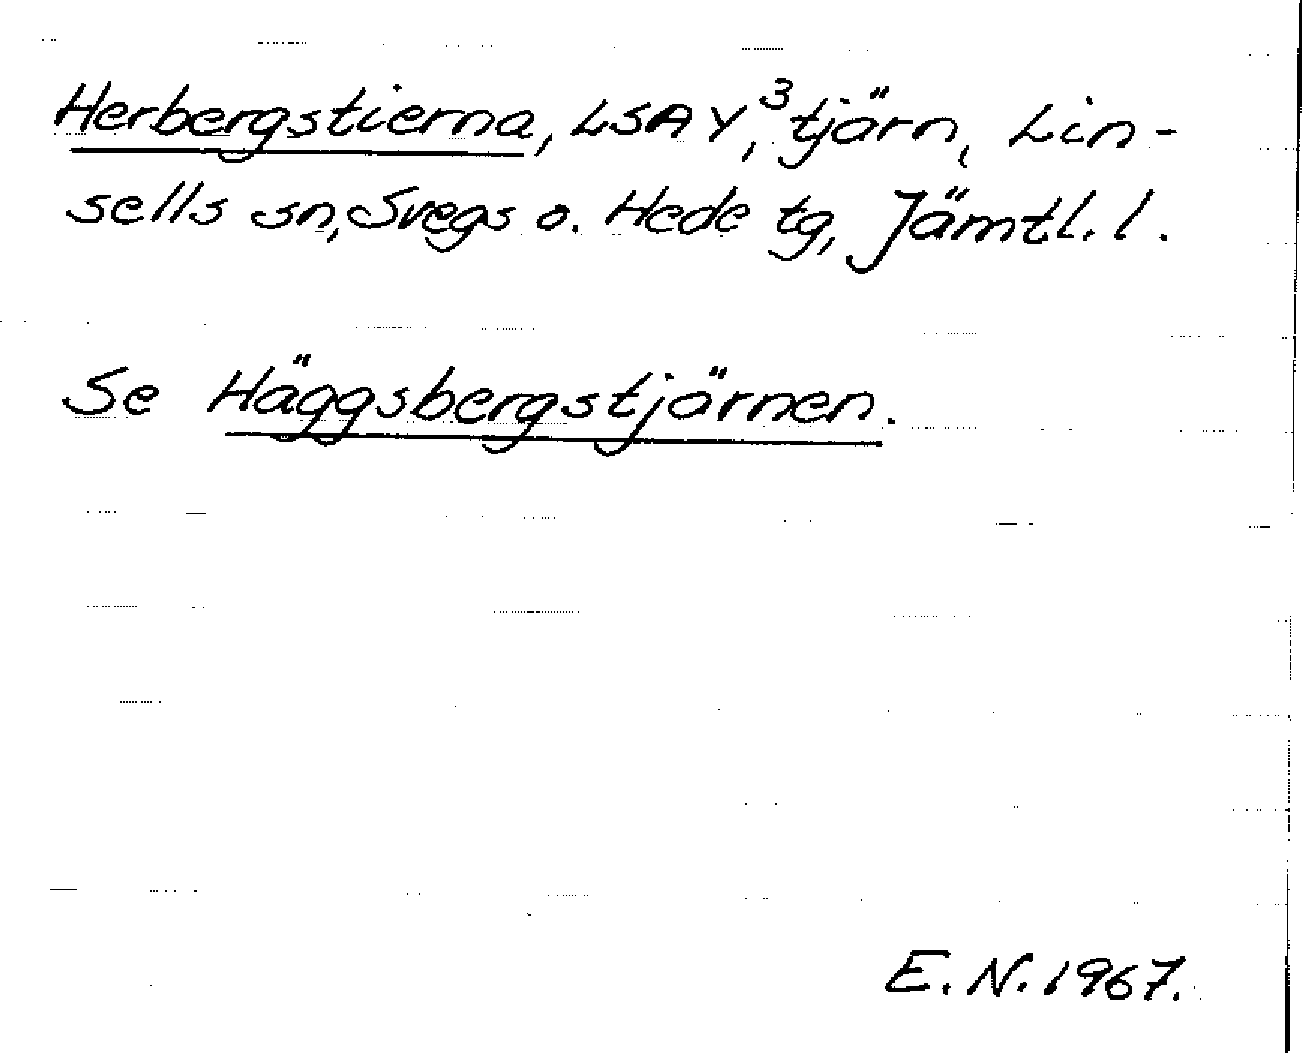 Herbergstierna, LSA Y,³ tjärn, Lin-
sells sn, Svegs o. Hede tg, Jämtl. l.
Se Häggsbergstjärnen.
E. N. 1967.